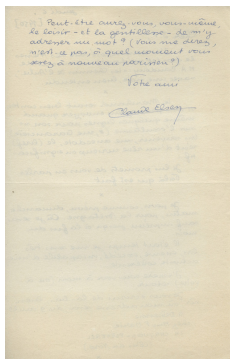 Peut-être aurez-vous, vous-même,
le loisir - et la gentillesse - de m'y
adresser un mot? (Vous me direz,
n'est-ce pas, à quel moment vous
serez à nouveau parisien?)
Votre ami
Claude